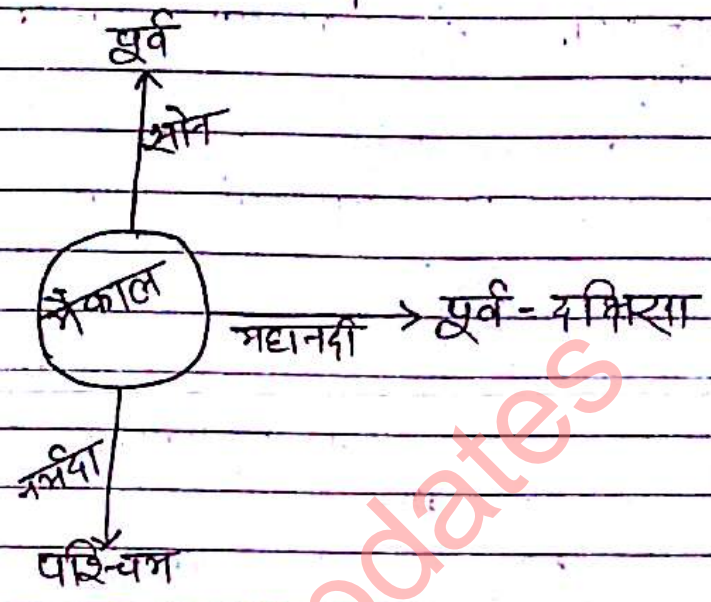 पूर्व
सोन
मैकाल
महानदी
पूर्व - दक्षिण
नर्मदा
पश्चिम